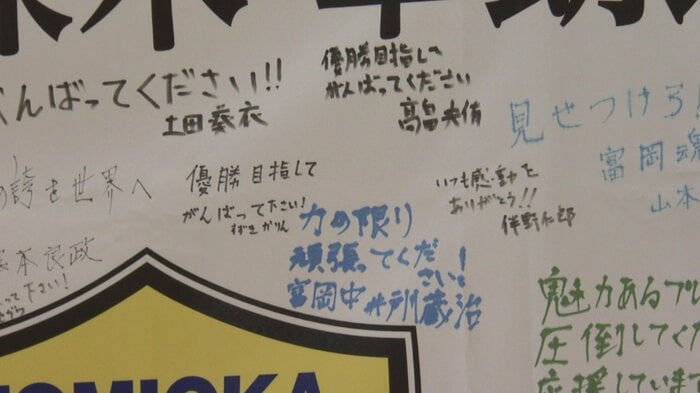 んばってください!!
土田葵衣
優勝目指して
がんばってください
高畠央侑
見せつけろ
富岡魂
山本
の誇を世界へ
本良政
って ださい!
優勝目指して
がんばって下さい!
すずき かりん
力の限り
頑張ってくだ
さい!
富岡中 井戸川蔵治
いつも感動を
ありがとう!!
伴野仁郎
魅力あるプレ
圧倒してくだ
応援しています
TOMIOKA